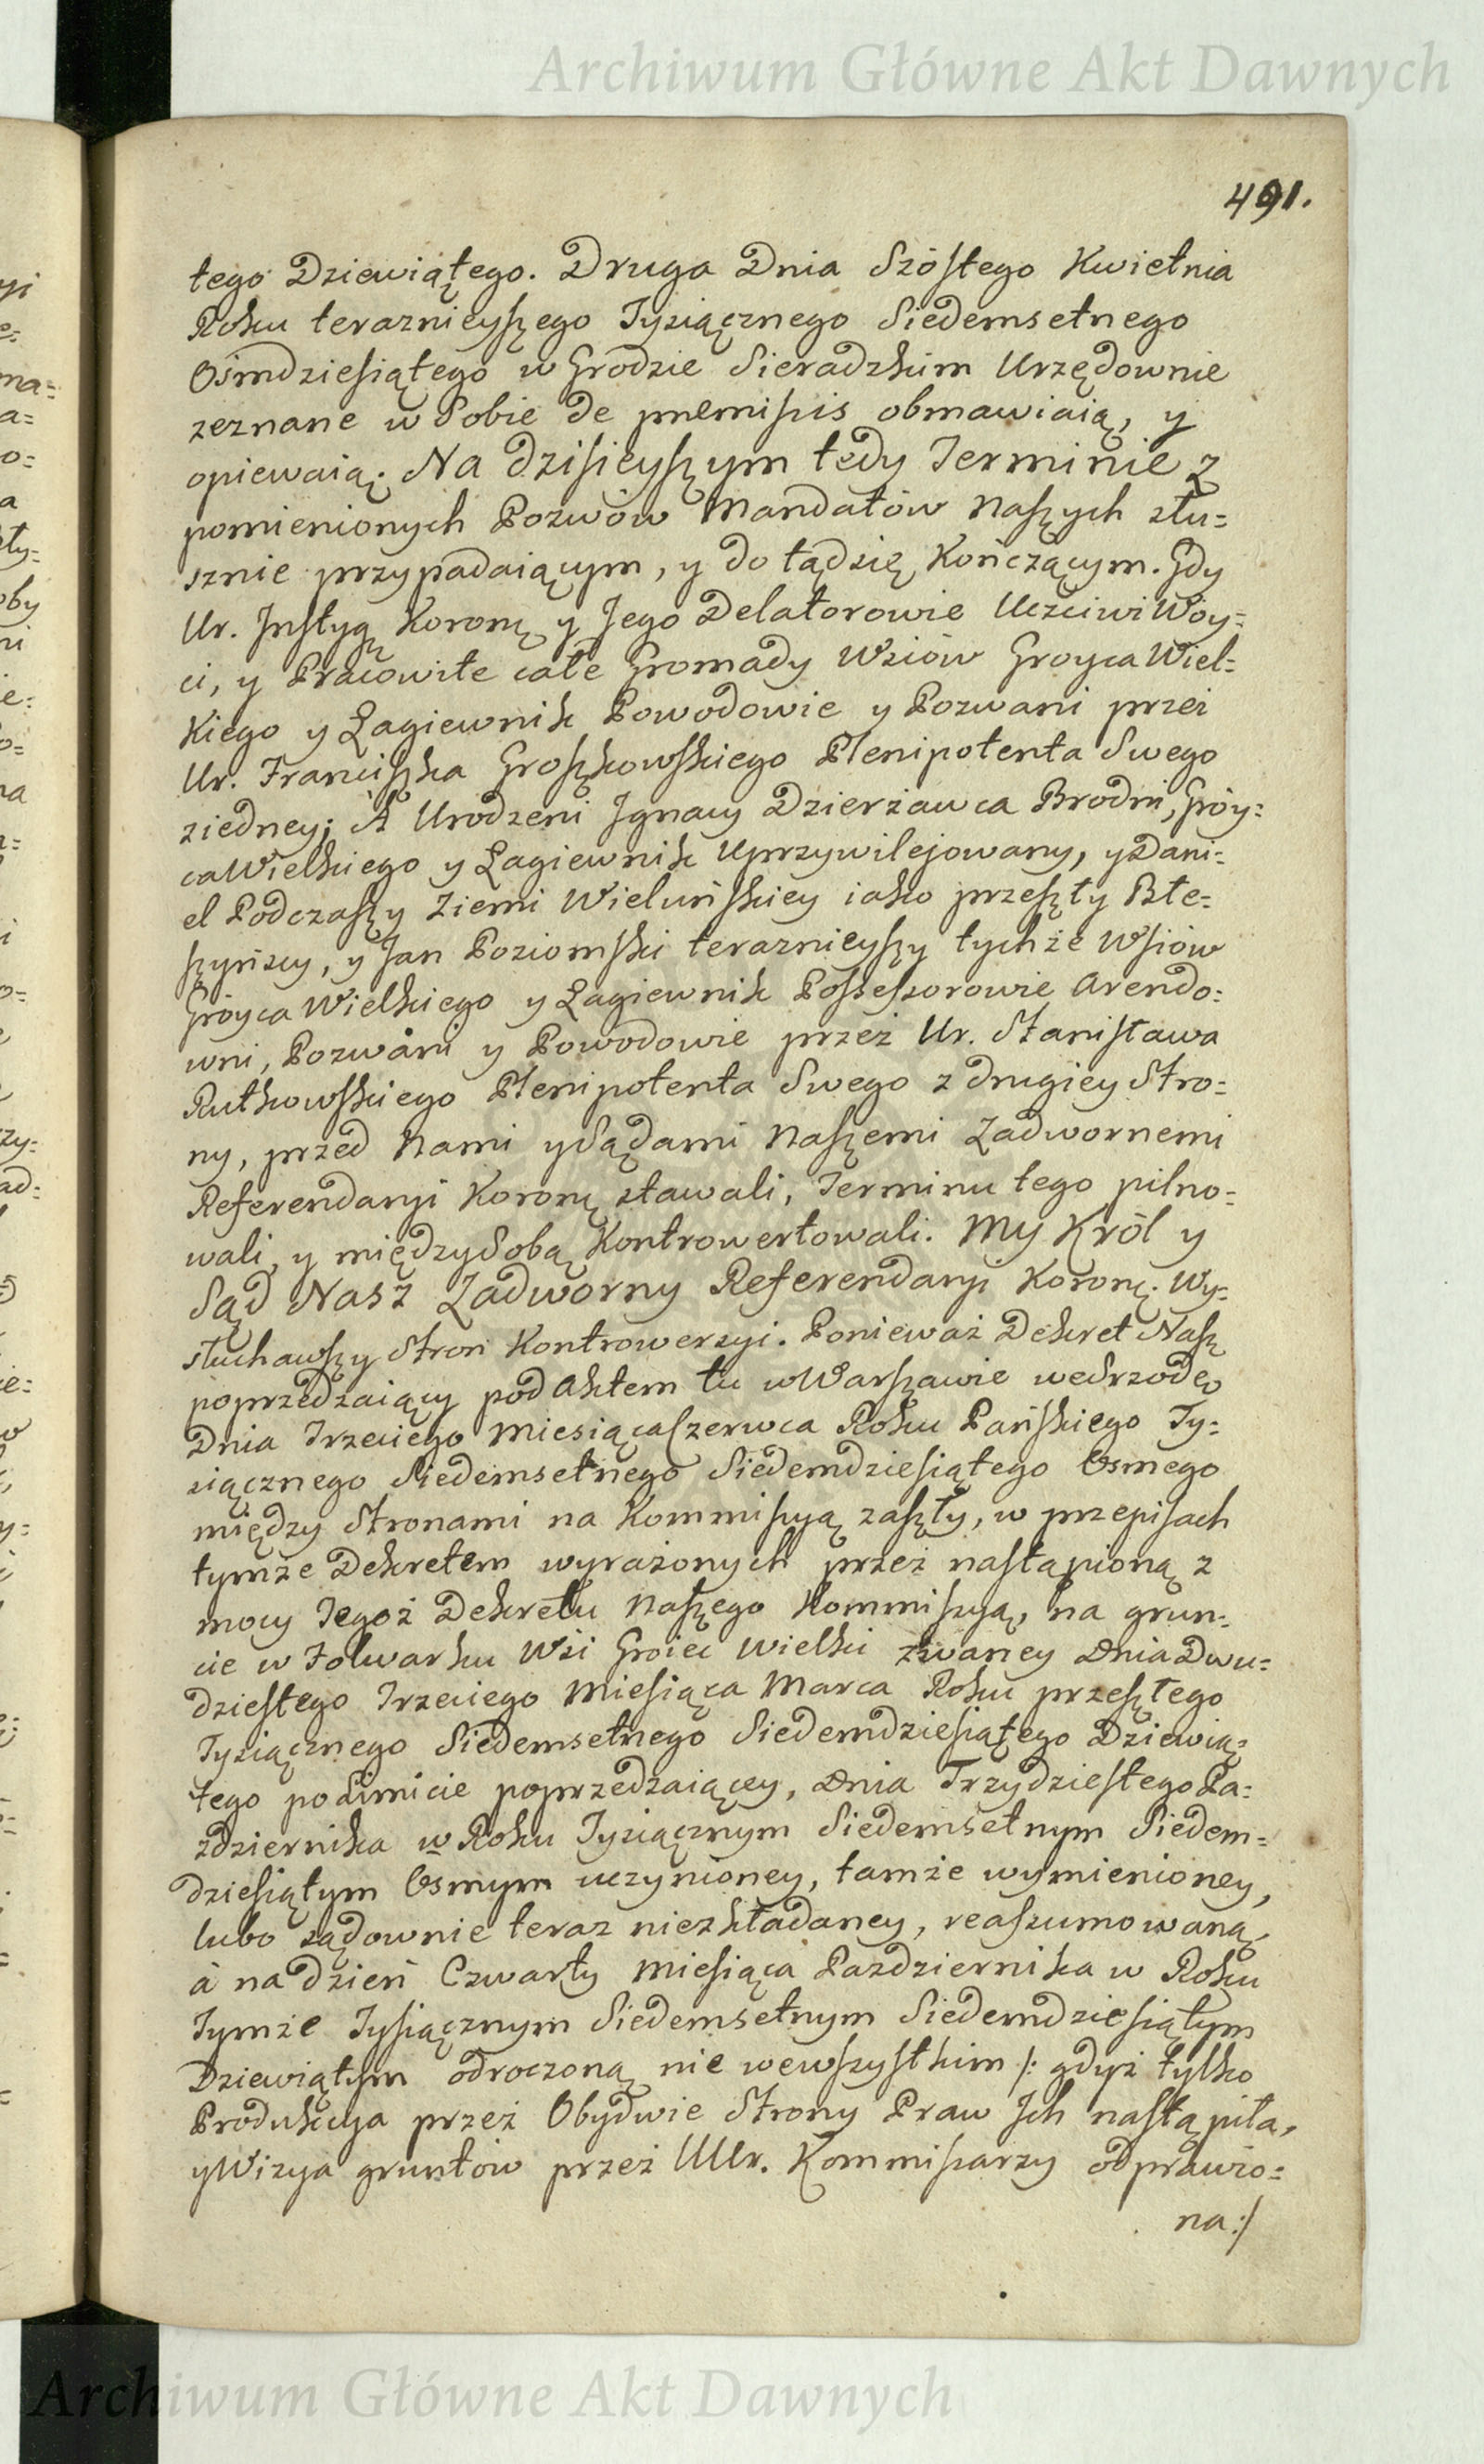 Archiwum Główne Akt Dawnych
491.
tego Dziewiątego. Druga Dnia Szóstego Kwietnia
Roku teraznieyszego Tysiącznego Siedemsetnego
Osmdziesiątego w Grodzie Sieradzkim Urzędownie
zeznane w Sobie de premissis obmawiaią, y
opiewaią. Na dzisieyszym tedy Terminie z
pomienionych Pozwów Mandatów Naszych słu=
sznie przypadaiącym, y do tądsię Kończącym. Gdy
Ur. Instyg. Koronę y Jego Delatorowie Uczciwi Woy=
ci, y Pracowite całe Gromady Wsiów Groyca Wiel=
kiego y Łagiewnik Powodowie y Pozwani przez
Ur. Franciszka Groszkowskiego Plenipotenta Swego
ziedney; A Urodzeni Ignacy Dzierżawca Brodni, Gróy=
ca Wielkiego y Łagiewnik Uprzywilejowany, y Dani=
el Podczaszy Ziemi Wieluńskiey iako przeszły Błe=
szyńscy, y Jan Poziomski teraznieyszy tychże Wsiów
Gróyca Wielkiego y Łagiewnik Possessorowie Arendo=
wni, Pozwani y Powodowie przez Ur. Stanisława
Rutkowskiego Plenipotenta Swego z drugiey Stro=
ny, przed Nami y Sądami Naszemi Zadwornemi
Referendaryi Koronę stawali, Terminu tego pilno=
wali, y między Sobą Kontrowertowali. My Król y
Sąd Nasz Zadworny Referendaryi Koronę. Wy=
słuchawszy Stron Kontrowersyi. Ponieważ Dekret Nasz
poprzedzaiący pod Aktem tu w Warszawie we Srzodę
Dnia Trzeciego Miesiąca Czerwca Roku Pańskiego Ty=
siącznego Siedemsetnego Siedemdziesiątego Osmego
między Stronami na Kommissyą zaszły, w przepisach
tymże Dekretem wyrażonych przez nastąpioną z
mocy Tegoż Dekretu Naszego Kommissyą, na grun=
cie w Folwarku Wsi Groiec Wielki zwaney Dnia Dwu=
dziestego Trzeciego Miesiąca Marca Roku przeszłego
Tysiącznego Siedemsetnego Siedemdziesiątego Dziewią=
tego po limicie poprzedzaiącey, Dnia Trzydziestego Pa=
zdziernika w Roku Tysiącznym Siedemsetnym Siedem=
dziesiątym Osmym uczynioney, tamże wymienioney,
lubo sądownie teraz niezkładaney, reassumowaną,
à na dzień Czwarty Miesiąca Pazdziernika w Roku
Tymże Tysiącznym Siedemsetnym Siedemdziesiątym
Dziewiątym odroczoną nie wewszystkim /: gdyż tylko
Produkcya przez Obydwie Strony Praw Ich nastąpiła,
y Wizya gruntów przez UUr. Kommissarzy odprawio=
na :/
Archiwum Główne Akt Dawnych